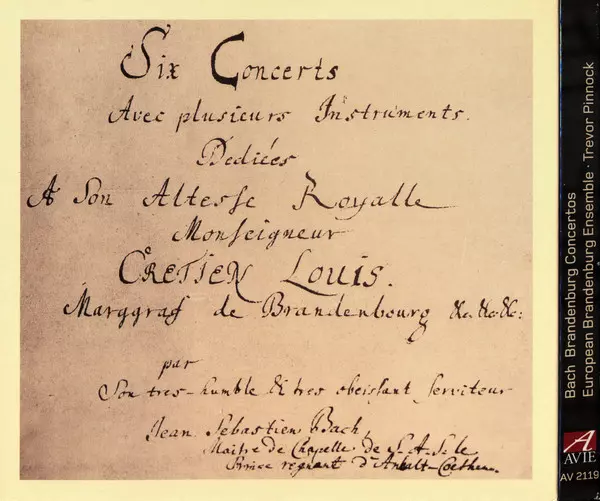 Six Concerts
Avec plusieurs Instruments.
Dediées
A Son Altesse Royalle
Monseigneur
CRETIEN LOUIS.
Marggraf de Brandenbourg &c.&c.&c:
par
Son tres-humble & tres obeissant serviteur
Jean Sebastien Bach,
Maitre de Chapelle de S.A.S. le
Prince regnant d'Anhalt-Coethen.
Bach Brandenburg Concertos
European Brandenburg Ensemble · Trevor Pinnock
A
AVIE
AV 2119